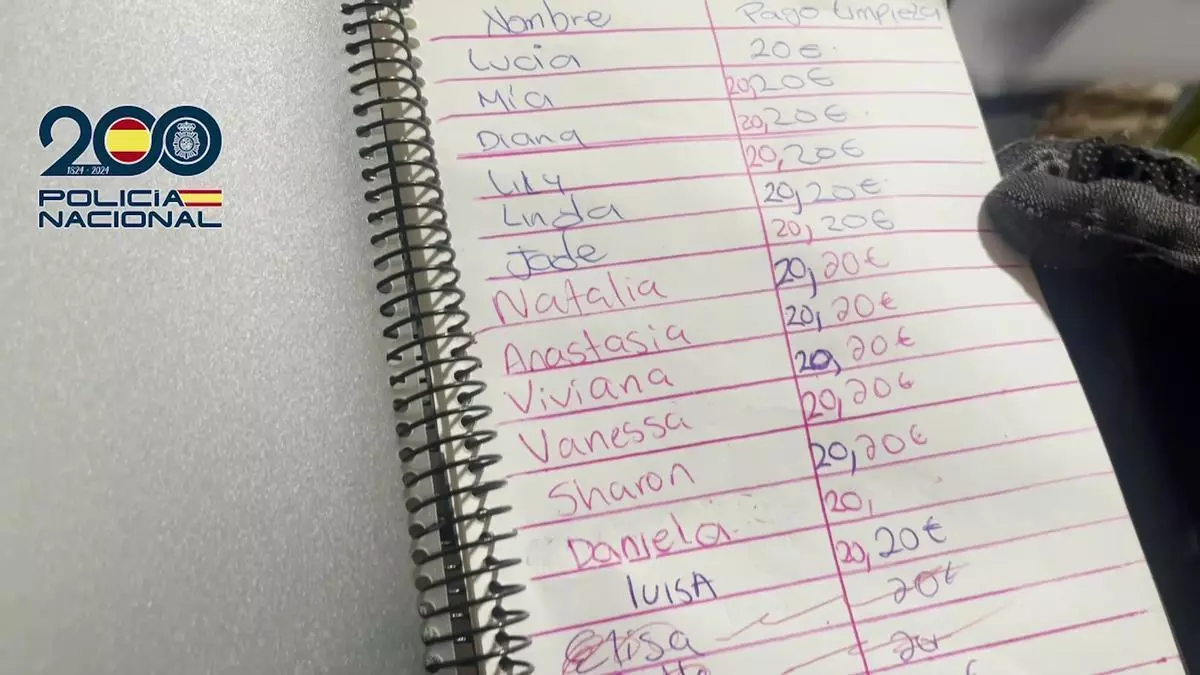 200
1824 - 2024
POLICÍA
NACIONAL
Nombre Pago Limpieza
Lucia 20€
Mía 20,20€
Diana 20,20€
Lily 20,20€
Linda 20,20€
Jade 20,20€
Natalia 20,20€
Anastasia 20,20€
Viviana 20,20€
Vanessa 20,20€
Sharon 20,20€
Daniela 20,
luisA 20,20€
Elisa 20€
20